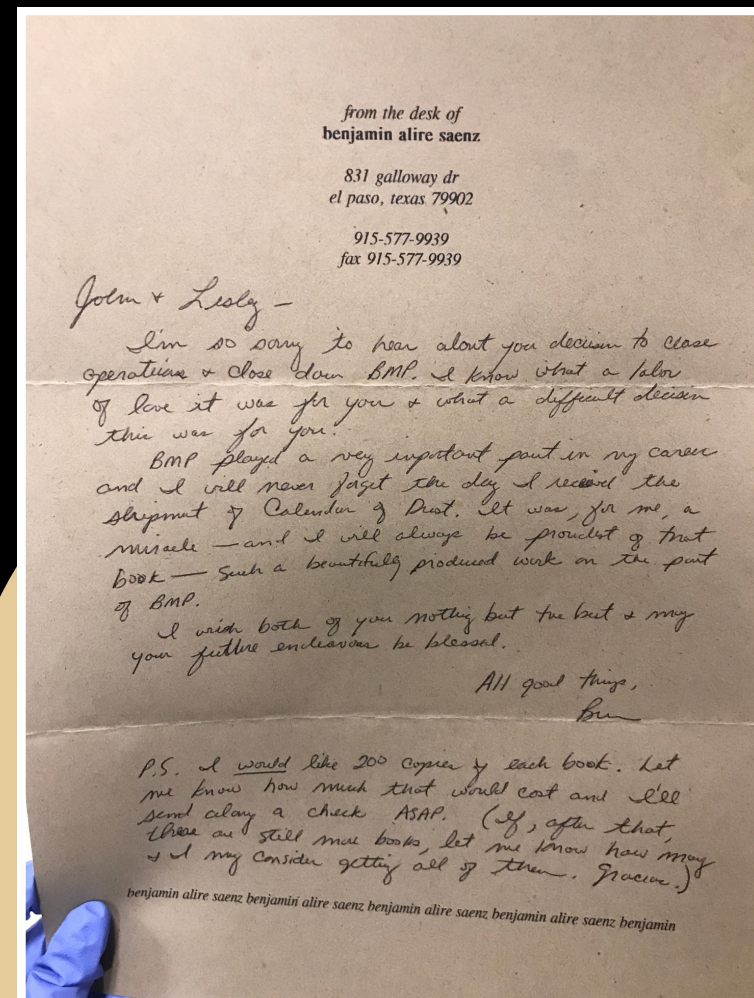 from the desk of
benjamin alire saenz
831 galloway dr
el paso, texas 79902
915-577-9939
fax 915-577-9939
John & Lesley —
I'm so sorry to hear about you decision to cease
operations & close down BMP. I know what a labor
of love it was for you & what a difficult decision
this was for you.
BMP played a very important part in my career
and I will never forget the day I received the
shipment of Calendar of Dust. It was, for me, a
miracle — and I will always be proudest of that
book — such a beautifully produced work on the part
of BMP.
I wish both of you nothing but the best & may
your future endeavors be blessed.
All good things,
Ben
P.S. I would like 200 copies of each book. Let
me know how much that would cost and I'll
send along a check ASAP. (If, after that,
there are still more books, let me know how many
& I may consider getting all of them. Gracias.)
benjamin alire saenz benjamin alire saenz benjamin alire saenz benjamin alire saenz benjamin